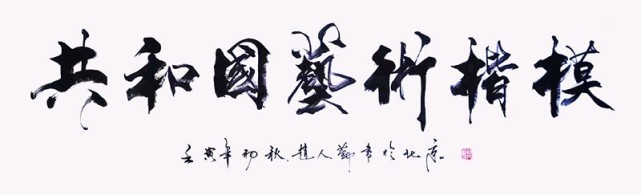 共和國藝術楷模
壬寅年初秋趙人勤書於北京